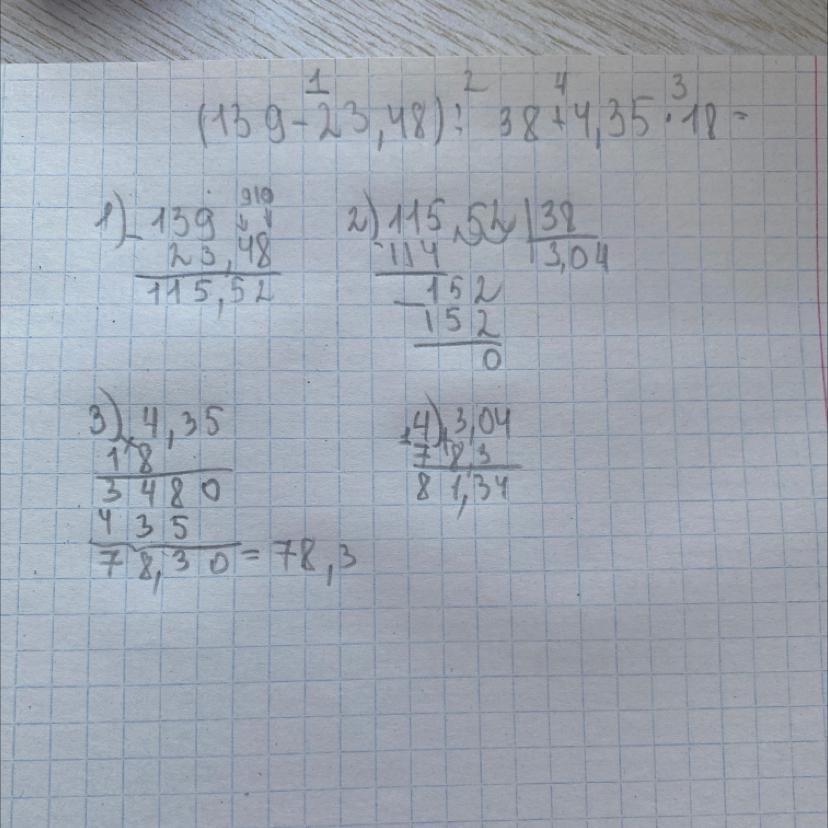 1 2 4 3
(139-23,48): 38+4,35·18=
1) 139 910
- 23,48
115,52
2) 115,52 | 38
-114 3,04
- 152
152
0
3) 4,35
× 18
3480
435
78,30 = 78,3
4) 3,04
+ 78,3
81,34